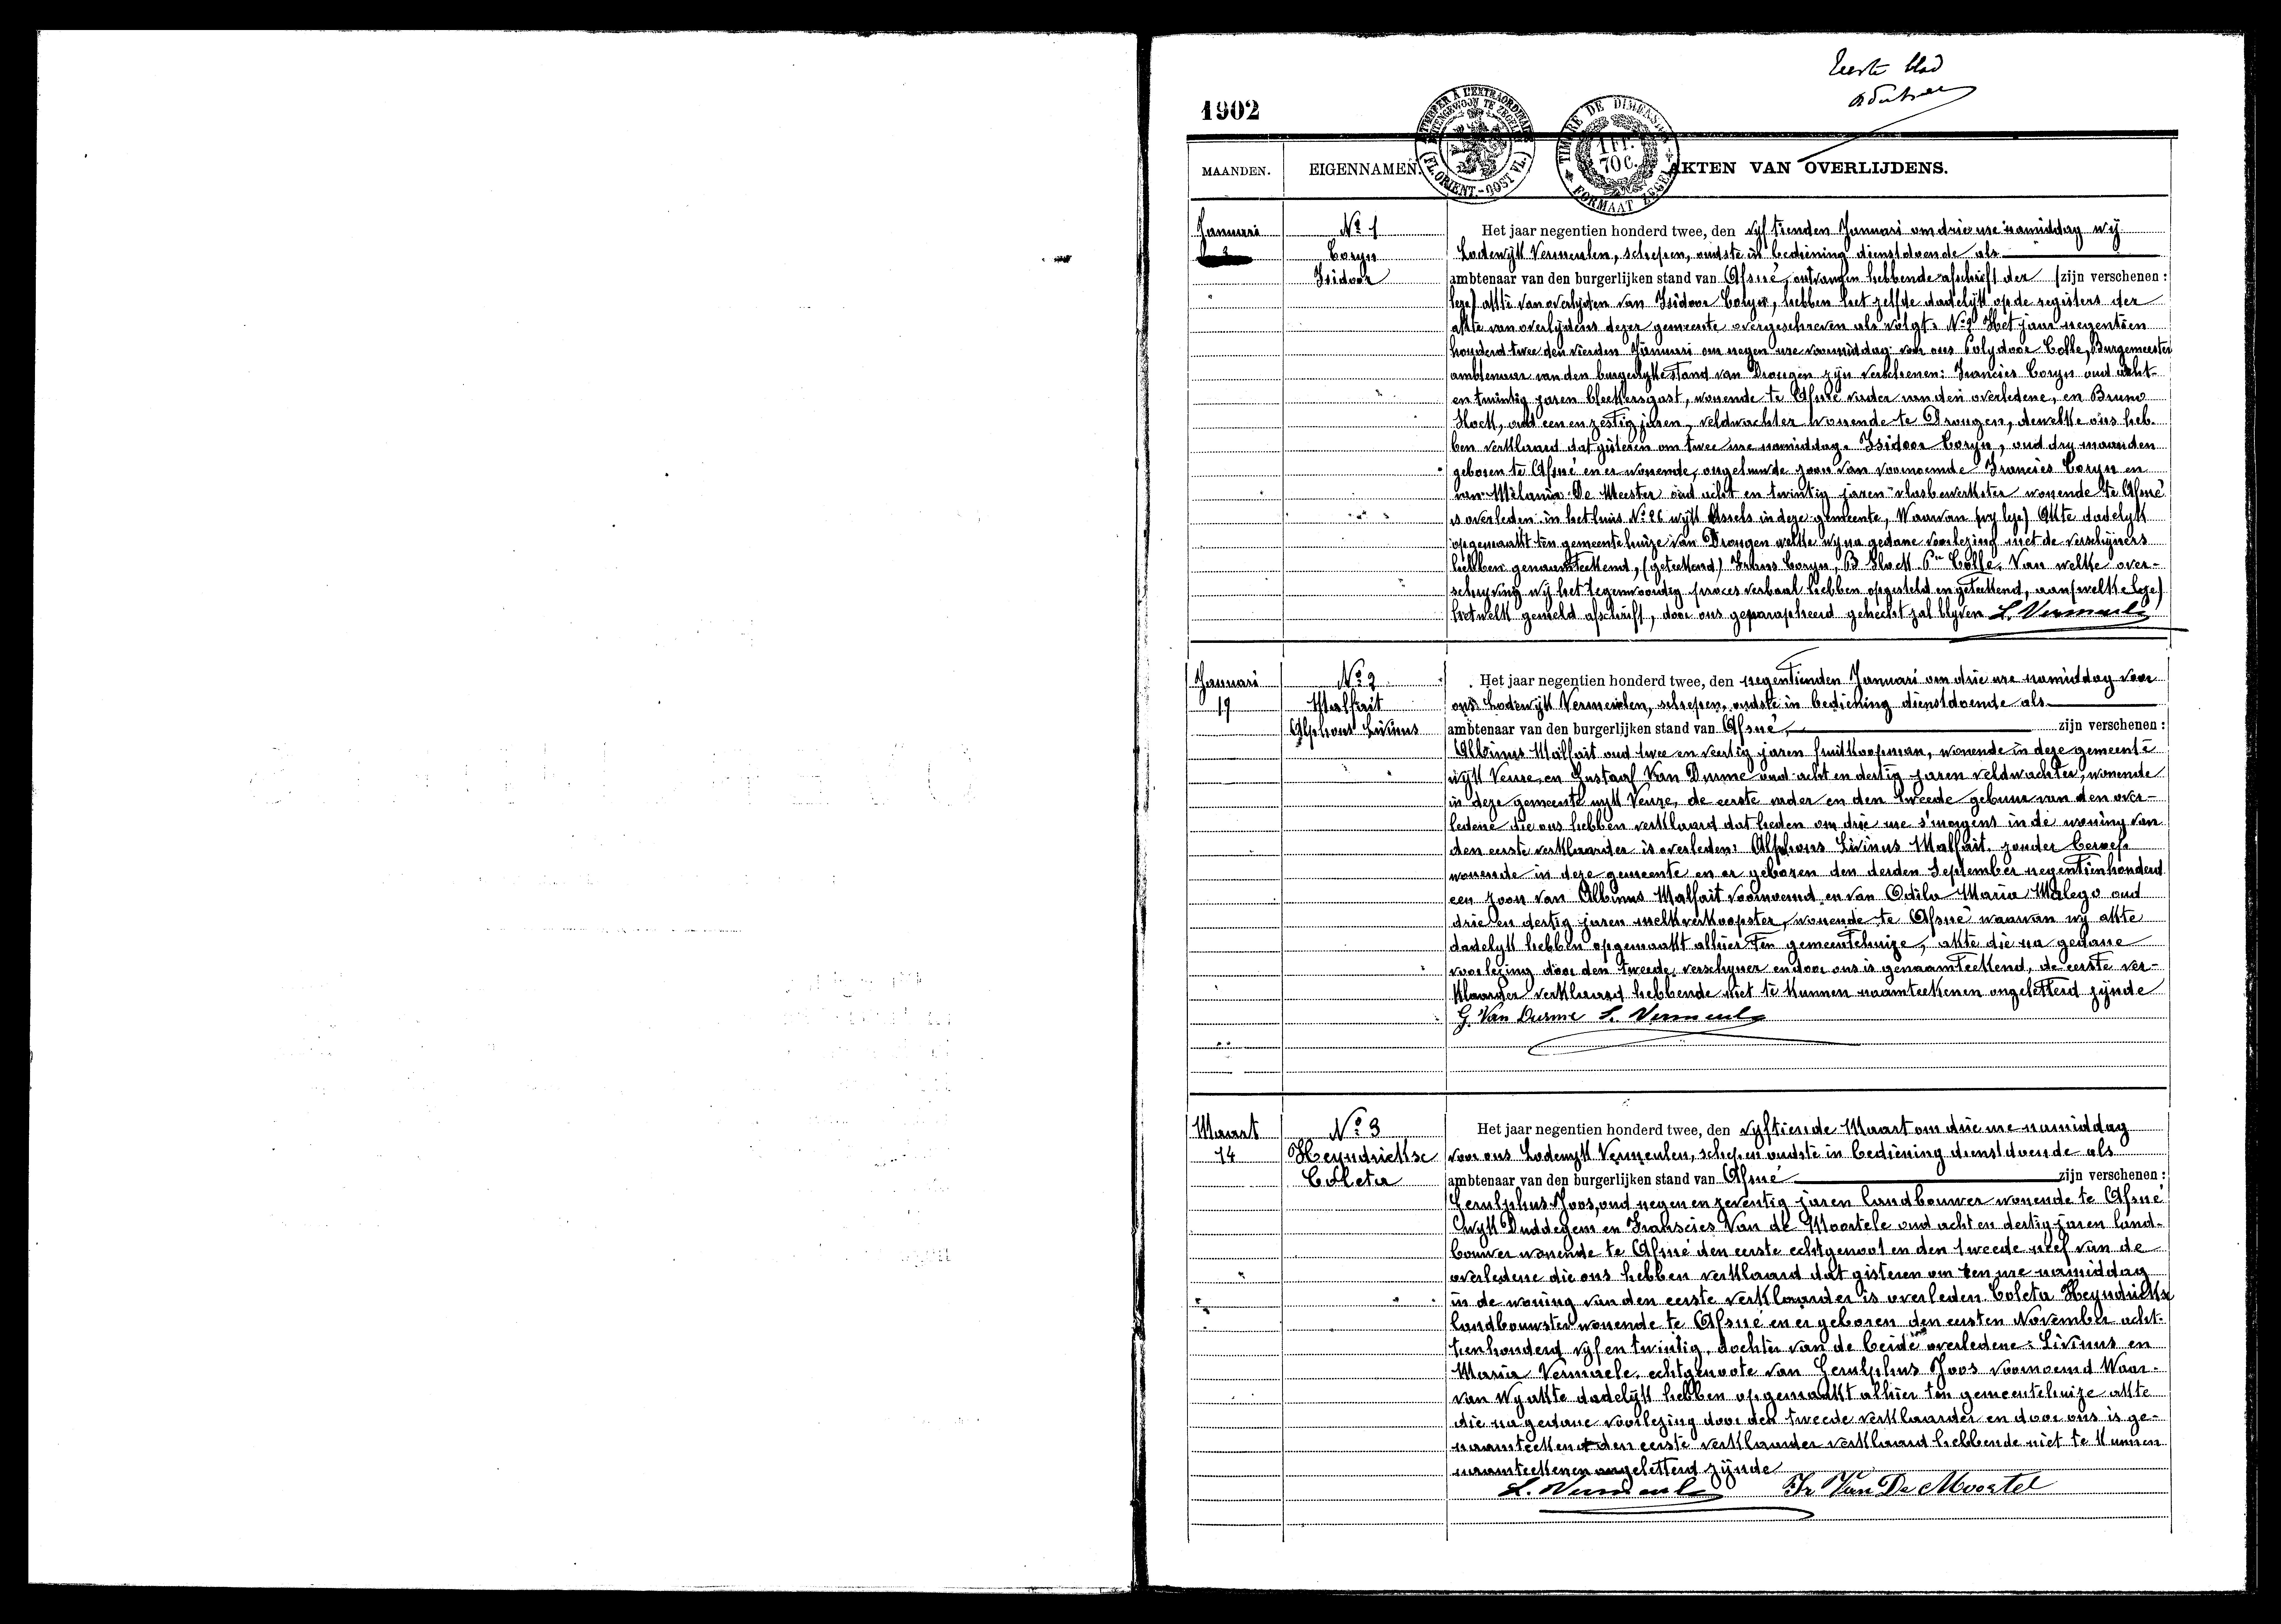 Eerste blad
1902
TIMBRER A L'EXTRAORDINAIRE
BUITENGEWOON TE ZEGELEN
(FL. ORIENT.-OOST VL.)
TIMBRE DE DIMENSION
1 FR. 70 C.
FORMAAT ZEGEL
MAANDEN. EIGENNAMEN. AKTEN VAN OVERLIJDENS.
Januari
3
No 1
Coryn
Isidoor
Het jaar negentien honderd twee, den vyftienden Januari om drie ure namiddag wij
Lodewijk Vermeulen, schepen, oudste in bediening dienstdoende als
ambtenaar van den burgerlijken stand van Afsné, ontvangen hebbende afschrift der (zijn verschenen:
leze) akte van overlyden van Isidoor Coryn, hebben het zelfde dadelijk op de registers der
akte van overlydens dezer gemeente overgeschreven als volgt. No 2 Het jaar negentien
honderd twee den vierden Januari om negen ure voormiddag voor ons Polydoor Colle, Burgemeester
ambtenaar van den burgerlyke stand van Drongen zyn verschenen: Francies Coryn oud acht-
en twintig jaren bleekersgast, wonende te Afsné vader van den overledene, en Bruno
Hock, oud een en zestig jaren, veldwachter wonende te Drongen, dewelke ons heb-
ben verklaard dat gisteren om twee ure namiddag, Isidoor Coryn, oud dry maanden
geboren te Afsné en er wonende, ongehuwde zoon van voornoemde Francies Coryn en
van Mélanie De Meester oud acht en twintig jaren vlasbewerkster wonende te Afsné
is overleden in het huis No 26 wijk Assels in deze gemeente, Waarvan (wy leze) Akte dadelyk
opgemaakt ten gemeentehuize van Drongen welke wy na gedane voorlezing met de verschijners
hebben genaamteekend, (geteekend) Frans Coryn, B Hock Pre Colle. Van welke over-
schryving wij het tegenwoordig proces verbaal hebben opgesteld en geteekend, aan (welke leze)
hetwelk gemeld afschrift, door ons geparapheerd gehecht zal blyven L. Vermeulen
Januari
19
No 2
Malfait
Alphons Livinus
Het jaar negentien honderd twee, den negentienden Januari om drie ure namiddag voor
ons Lodewijk Vermeulen, schepen, oudste in bediening dienstdoende als
ambtenaar van den burgerlijken stand van Afsné, zijn verschenen:
Albinus Malfait oud twee en veertig jaren fruitkoopman, wonende in deze gemeente
wijk Veure, en Gustaaf Van Durme oud acht en dertig jaren veldwachter, wonende
in deze gemeente wijk Veure, de eerste vader en den tweede gebuur van den over-
ledene die ons hebben verklaard dat heden om drie ure s'morgens in de woning van
den eerste verklaarder is overleden: Alphons Livinus Malfait, zonder beroep
wonende in deze gemeente en er geboren den derden September negentienhonderd
een zoon van Albinus Malfait voornoemd en van Odila Maria Malego oud
drie en dertig jaren melkverkoopster, wonende te Afsné waarvan wy akte
dadelyk hebben opgemaakt alhier ten gemeentehuize, akte die na gedane
voorlezing door den tweede verschyner en door ons is genaamteekend, de eerste ver-
klaarder verklaard hebbende niet te kunnen naamteekenen ongeletterd zijnde
G. Van Durme L. Vermeulen
Maart
14
No 3
Heyndrickse
Coleta
Het jaar negentien honderd twee, den vyftiende Maart om drie ure namiddag
voor ons Lodewijk Vermeulen, schepen oudste in bediening dienstdoende als
ambtenaar van den burgerlijken stand van Afsné zijn verschenen:
Gerulphus Joos, oud negen en zeventig jaren landbouwer wonende te Afsné
wijk Duddegem en Franscies Van de Moortele oud acht en dertig jaren land-
bouwer wonende te Afsné den eerste echtgenoot en den tweede neef van de
overledene die ons hebben verklaard dat gisteren om een ure namiddag
in de woning van den eerste verklaarder is overleden Coleta Heyndrickse
landbouwster wonende te Afsné en er geboren den eersten November acht-
tien honderd vyf en twintig, dochter van de beide overledene: Livinus en
Maria Vermaele, echtgenoote van Gerulphus Joos voornoemd Waar-
van wy akte dadelijk hebben opgemaakt alhier ten gemeentehuize akte
die na gedane voorlezing door den tweede verklaarder en door ons is ge-
naamteekend den eerste verklaarder verklaard hebbende niet te kunnen
naamteekenen ongeletterd zijnde
L. Vermeulen Fr Van De Moortel